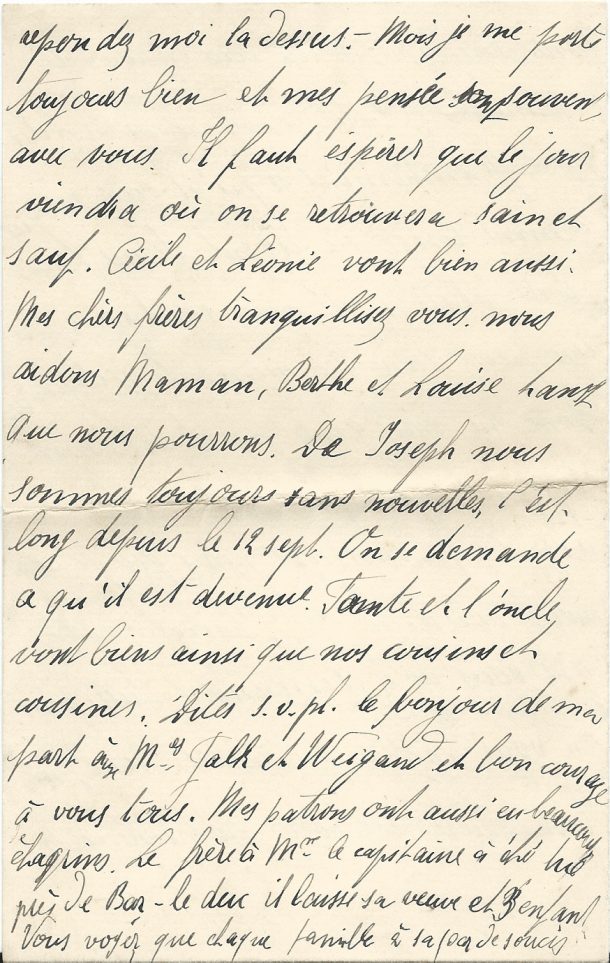 repondez moi la dessus.- Mois je me porte
toujoues bien et mes pensée sont souvent
avec vous. Il faut éspérer que le jour
viendra où on se retrouvera sain et
sauf. Cécile et Léonie vont bien aussi.
Mes chèrs frères tranquillisez vous. nous
aidons Maman, Berthe et Louise tant
que nous pourrons. De Joseph nous
sommes toujours sans nouvelles, c'est
long depuis le 12 sept. On se demande
a qu'il est devenue. Tante et l'oncle
vont biens ainsi que nos cousins et
cousines. Dités s.v.pl. le bonjour de ma
part à Mrs Falk et Weigand et bon courage
à vous tous. Mes patrons ont aussi eu beaucoup
chagrins. Le frère à Mr le capitaine à été tué
près de Bar-le duc il laisse sa veuve et 3 enfant
Vous voyér que chaque famille à sa par de soucis